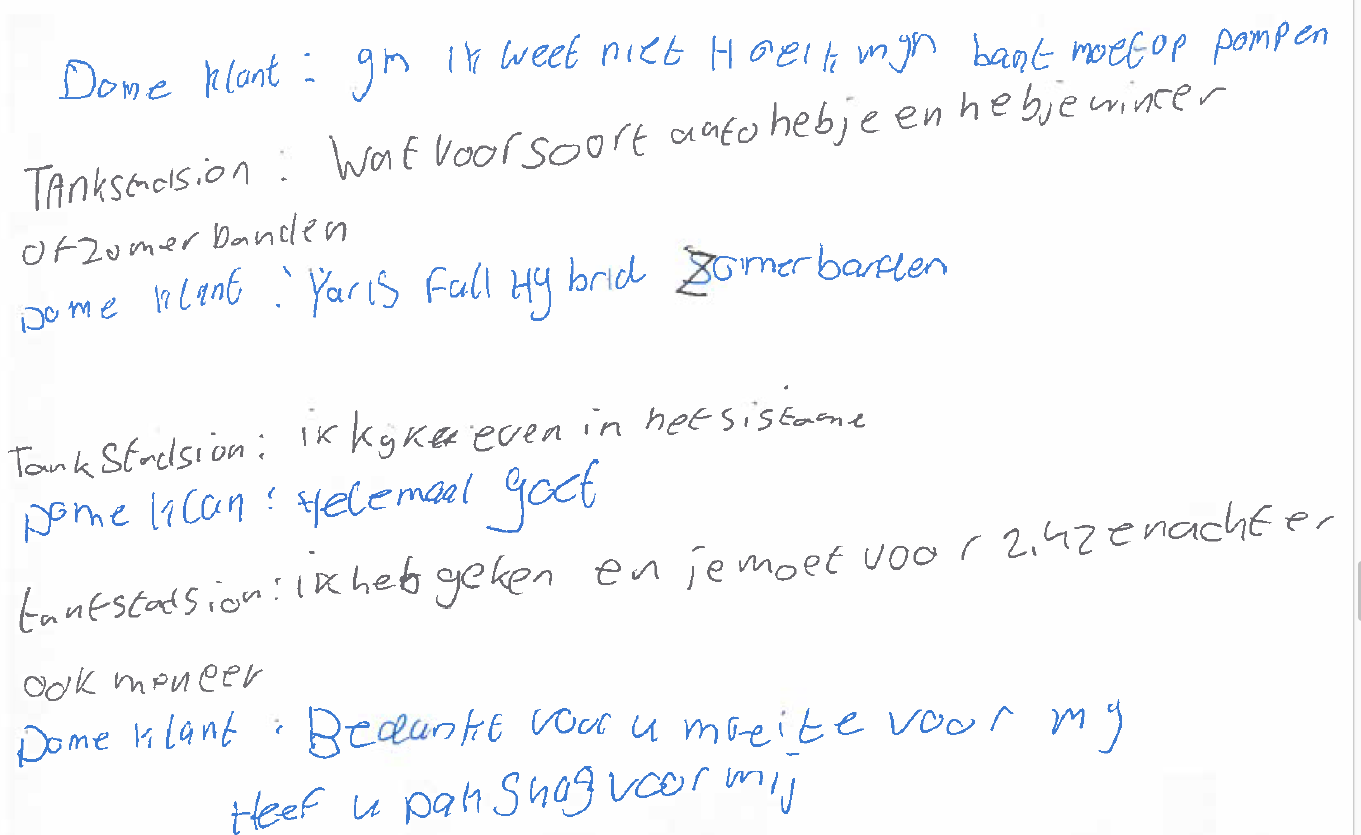 Dome klant : gm ik weet niet Hoe ik mijn bant moet op pompen
TAnkstadsion : Wat voor soort auto heb je en heb je winter
of zomer banden
Dome klant : Yaris Full Hybrid Zomer banden
TankStadsion : ik kyk even in het sisteme
Dome klan : Helemaal goet
tankstadsion : ik heb geken en je moet voor 2.42 en achter
ook meneer
Dome klant : Bedankt voor u moeite voor my
Heef u pak Shag voor mij